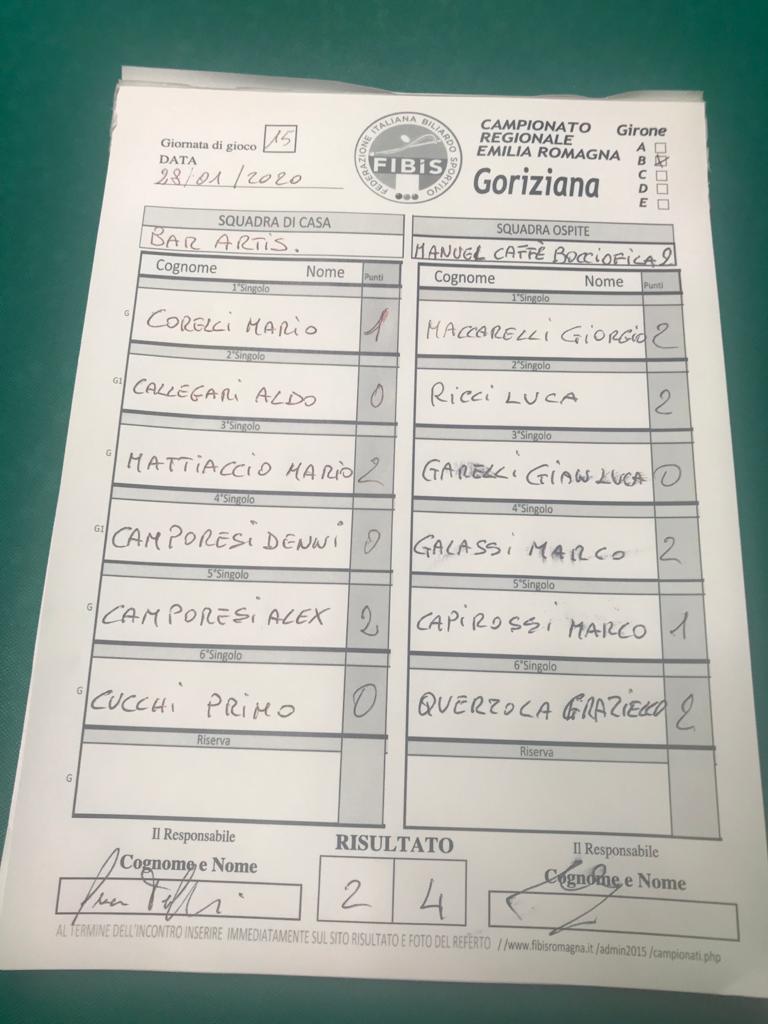 Giornata di gioco 15
DATA
28/01/2020
FEDERAZIONE ITALIANA BILIARDO SPORTIVO
FIBiS
CAMPIONATO
REGIONALE
EMILIA ROMAGNA
Goriziana
Girone
A
B
C
D
E
SQUADRA DI CASA
BAR ARTiS.
SQUADRA OSPITE
MANUEL CAFFÈ BOCCIOFILA 2
Cognome Nome Punti
Cognome Nome Punti
1°Singolo
1°Singolo
G CORELLI MARIO 1
MACCARELLI GIORGIO 2
2°Singolo
2°Singolo
G1 CALLEGARI ALDO 0
RICCI LUCA 2
3°Singolo
3°Singolo
G MATTIACCIO MARIO 2
GARELLI GIANLUCA 0
4°Singolo
4°Singolo
G1 CAMPORESI DENNI 0
GALASSI MARCO 2
5°Singolo
5°Singolo
G CAMPORESI ALEX 2
CAPIROSSI MARCO 1
6°Singolo
6°Singolo
G CUCCHI PRIMO 0
QUERZOLA GRAZIELLO 2
Riserva
Riserva
G
Il Responsabile
Cognome e Nome
RISULTATO
2 4
Il Responsabile
Cognome e Nome
AL TERMINE DELL'INCONTRO INSERIRE IMMEDIATAMENTE SUL SITO RISULTATO E FOTO DEL REFERTO //www.fibisromagna.it /admin2015 /campionati.php